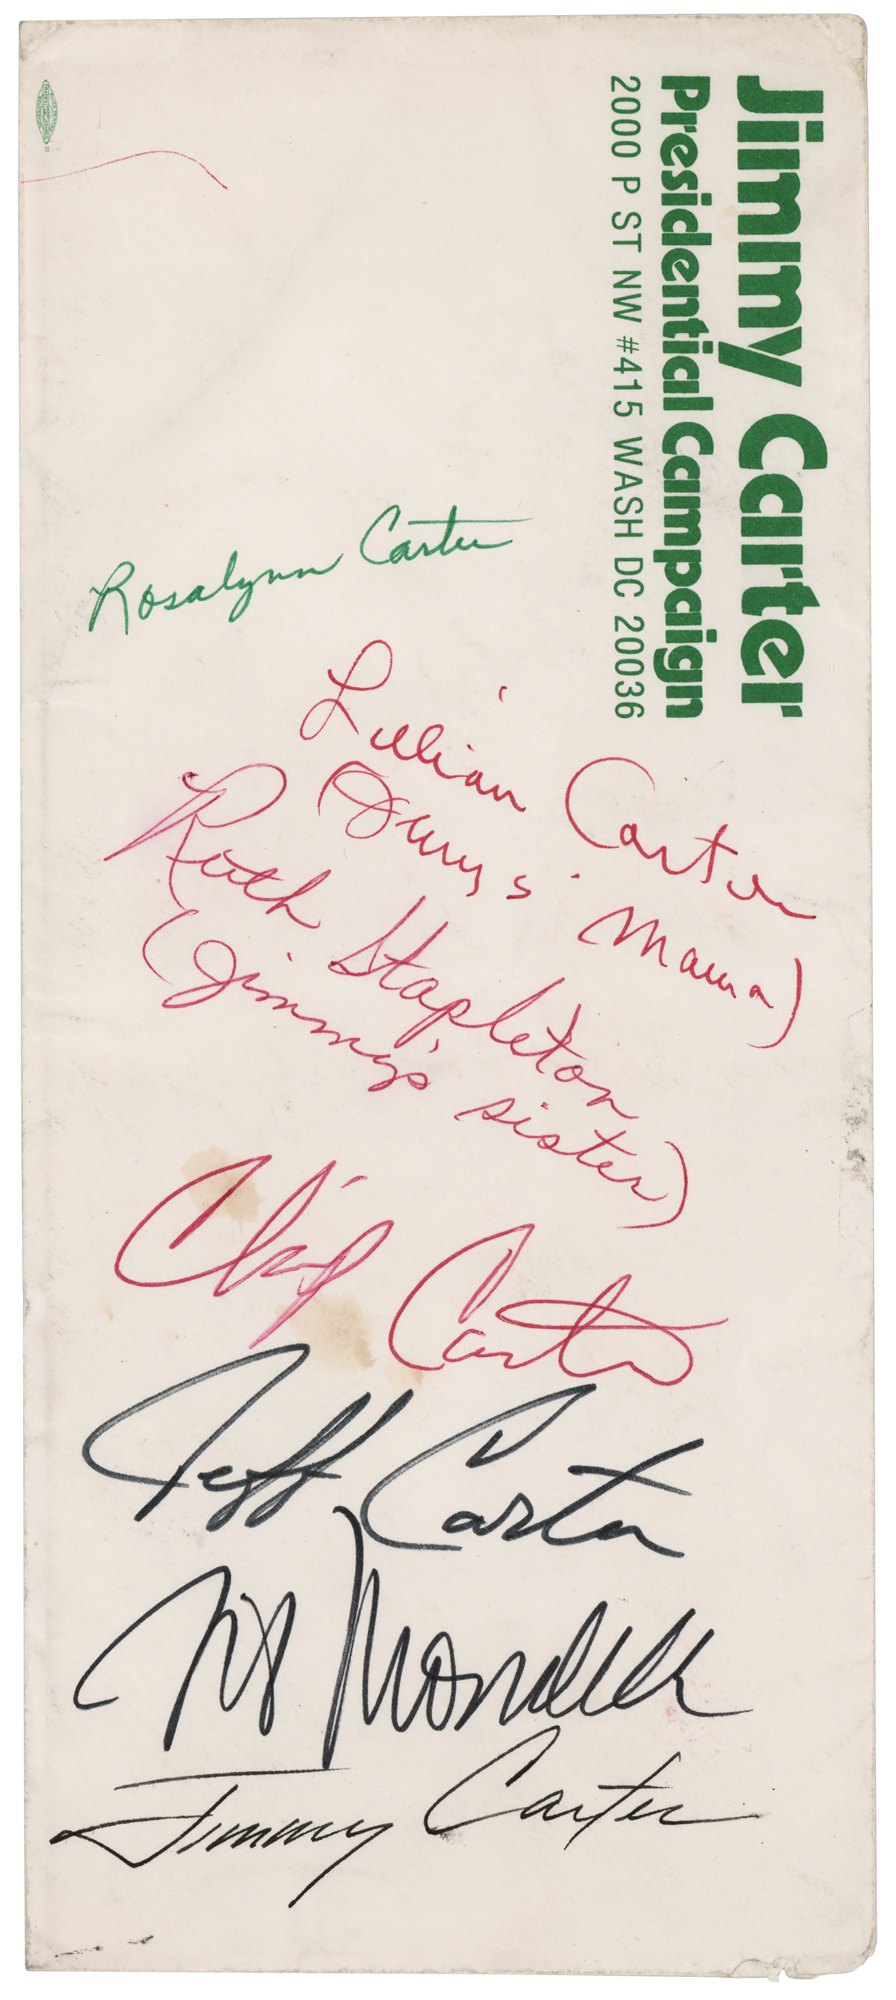 Jimmy Carter
Presidential Campaign
2000 P ST NW #415 WASH DC 20036
Rosalynn Carter
Lillian Carter
(Jimmy's Mama)
Ruth Stapleton
(Jimmy's sister)
Chip Carter
Jeff Carter
Mondale
Jimmy Carter